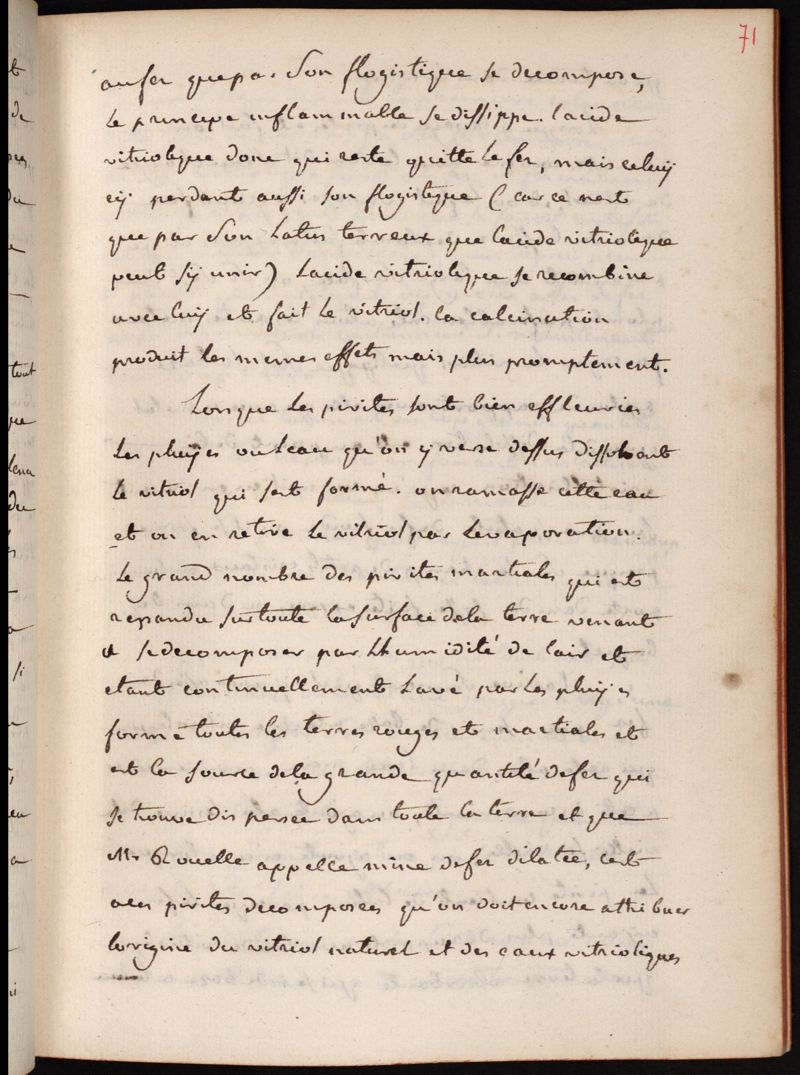 71
aufer que par son flogistique se decompose,
Le principe inflammable se dissippe. lacide
vitriolique donc qui reste quitte le fer, mais celuy
cy perdant aussi son flogistique (car ce nest
que par son Latus terreux que lacide vitriolique
peut s'y unir) Lacide vitriolique se recombine
avec luy et fait le vitriol. la calcination
produit les memes effets mais plus promptement.
Lorsque les pirites sont bien effleuries
Les pluyes ou Leau qu'on y verse dessus dissolvent
le vitriol qui sest formé. on ramasse cette eau
et on en retire le vitriol par Levaporation.
Le grand nombre des pirites martiales qui est
repandu sur toute la surface de la terre venant
a se decomposer par Lhumidité de lair et
etant continuellement Lavé par les pluyes
forme toutes les terres rouges et martiales et
est la source de la grande quantité de fer qui
se trouve dispersee dans toute la terre et que
Mr Rouelle appelle mine de fer dilatée, cest
aces pirites decomposees qu'on doit encore attribuer
lorigine du vitriol naturel et des eaux vitrioliques